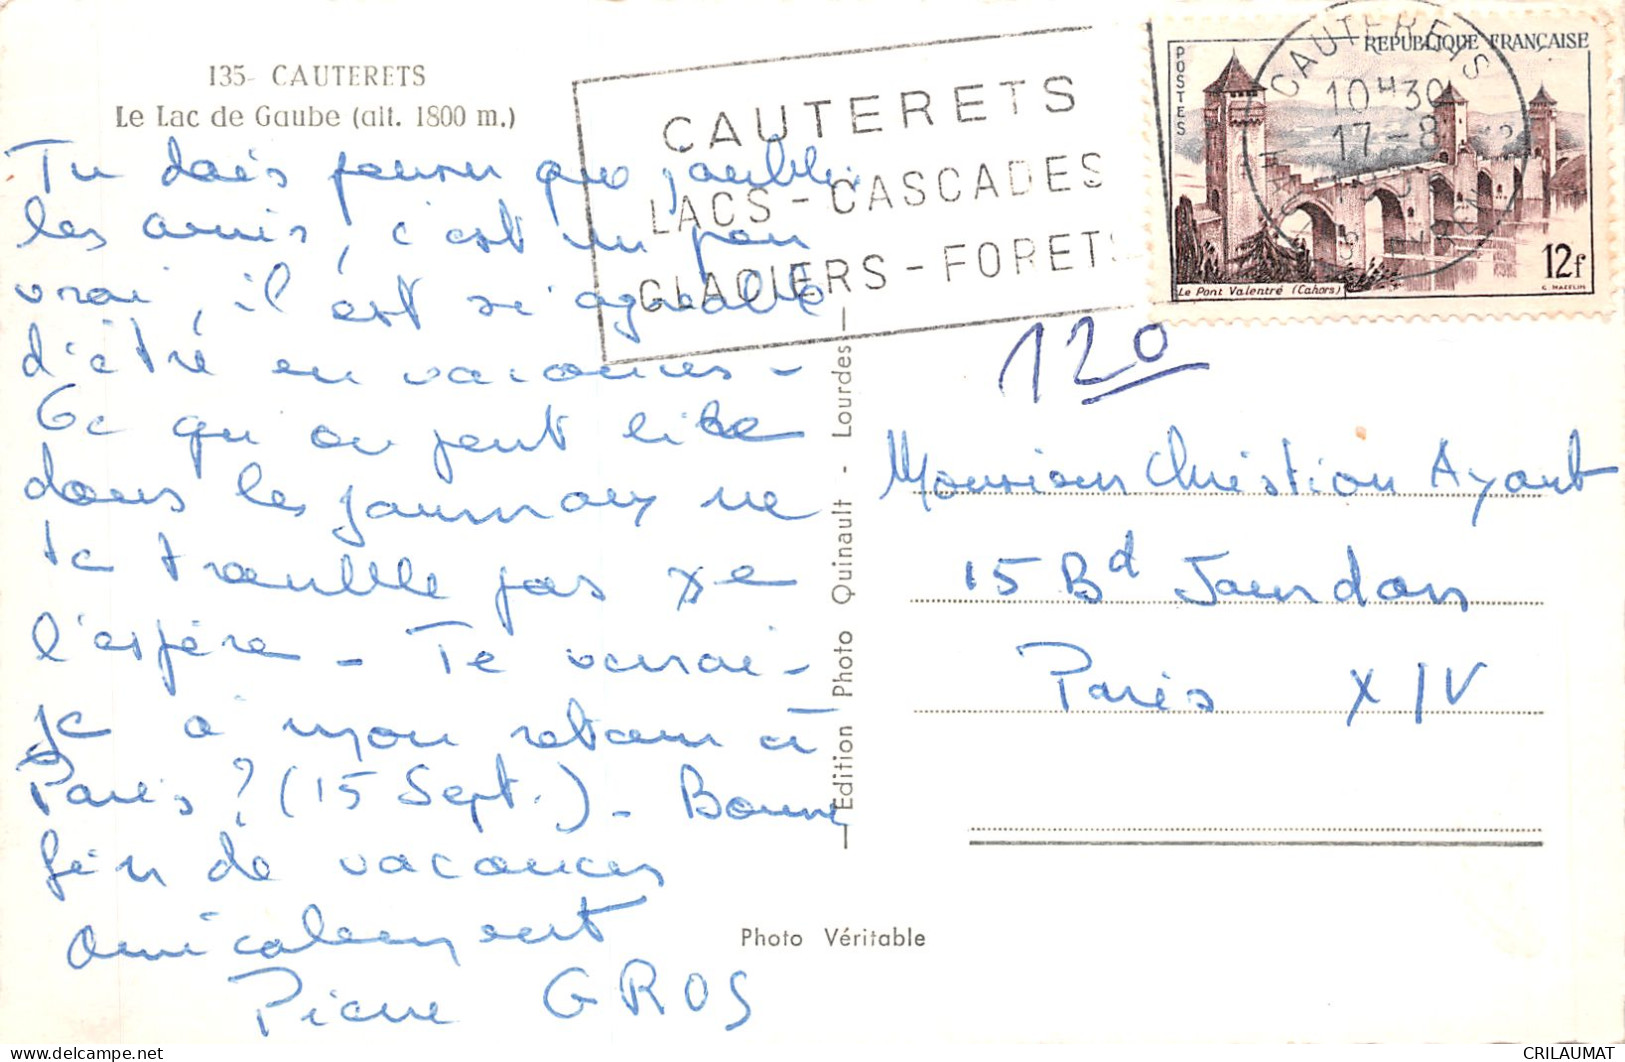 135- CAUTERETS
Le Lac de Gaube (alt. 1800 m.)
Tu dois penser que j'oublie
les amis, c'est un peu
vrai, il est si agréable
d'être en vacances -
Ce qu'on peut lire
dans les journaux ne
te trouble pas je
l'espère - Te verrai-
je à mon retour à
Paris ? (15 Sept.) - Bonne
fin de vacances
amicalement
Pierre GROS
CAUTERETS
LACS - CASCADES
GLACIERS - FORETS
CAUTERETS
10H30
17-8
POSTES
REPUBLIQUE FRANÇAISE
12f
Le Pont Valentré (Cahors)
120
Monsieur Christian Ayant
15 Bd Jourdan
Paris XIV
Edition Photo Quinault - Lourdes
Photo Véritable
CRILAUMAT